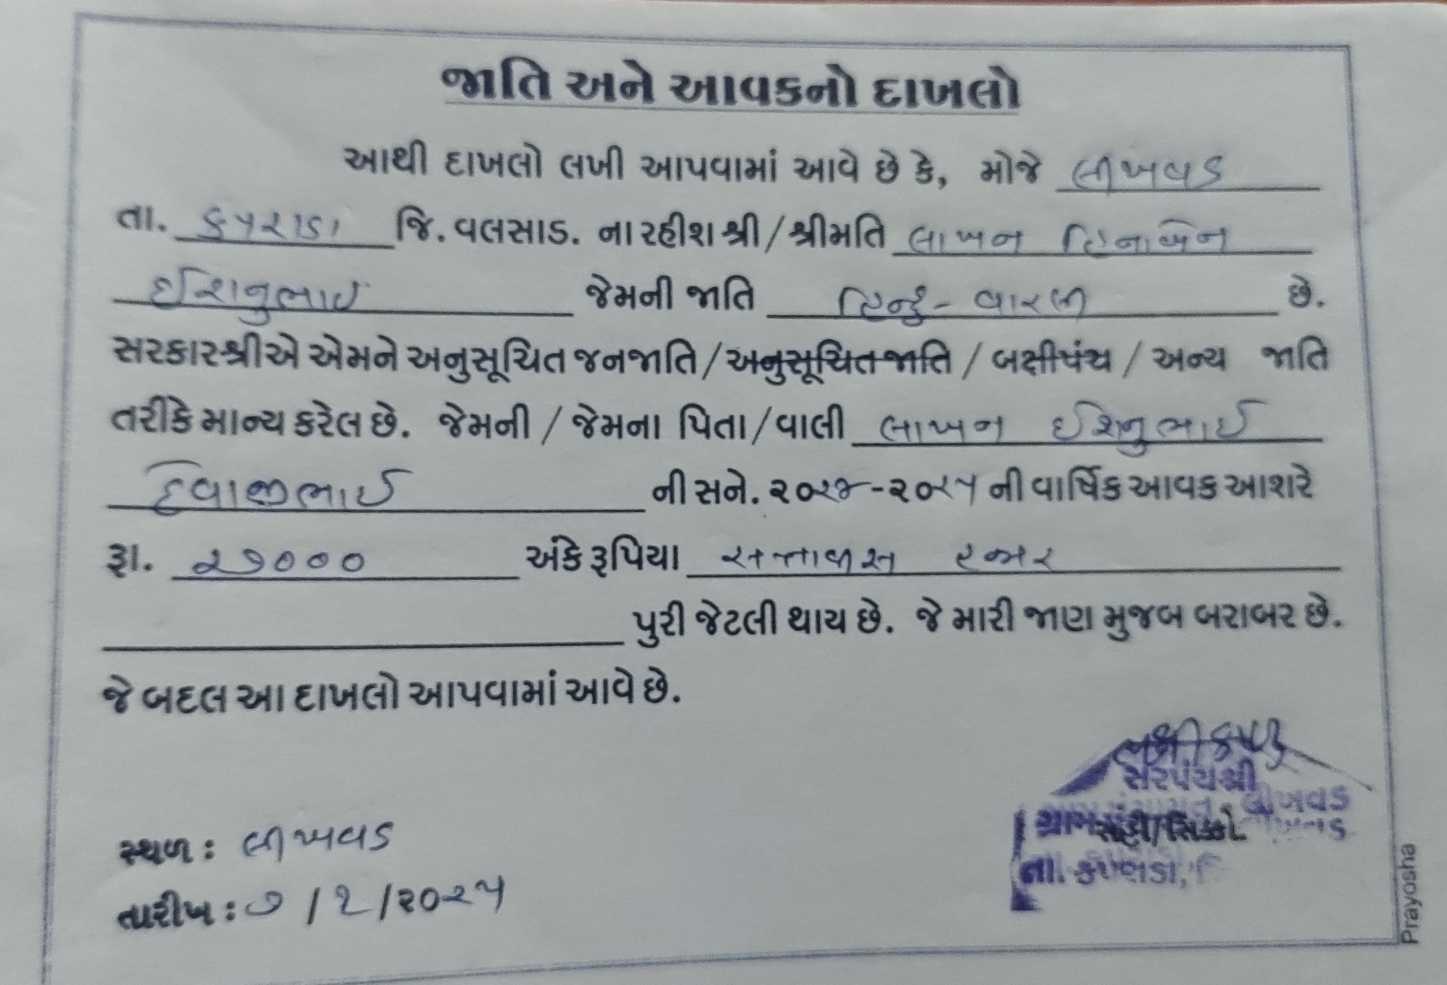 જાતિ અને આવકનો દાખલો
આથી દાખલો લખી આપવામાં આવે છે કે, મોજે લીખવડ
તા. કપરાડા જિ. વલસાડ. ના રહીશ શ્રી/શ્રીમતિ લાખન હિનાબેન
ઈશનુભાઈ જેમની જાતિ હિન્દુ-વારલી છે.
સરકારશ્રીએ એમને અનુસૂચિત જનજાતિ/અનુસૂચિત જાતિ / બક્ષીપંચ / અન્ય જાતિ
તરીકે માન્ય કરેલ છે. જેમની / જેમના પિતા/વાલી લાખન ઈશનુભાઈ
દેવાજીભાઈ ની સને. ૨૦૨૪-૨૦૨૫ ની વાર્ષિક આવક આશરે
રૂા. ૨૭૦૦૦ અંકે રૂપિયા સત્તાવીસ હજાર
પુરી જેટલી થાય છે. જે મારી જાણ મુજબ બરાબર છે.
જે બદલ આ દાખલો આપવામાં આવે છે.
સરપંચશ્રી
સ્થળ : લીખવડ
સહી/સિક્કો
તા. કપરાડા,
તારીખ : ૭/૨/૨૦૨૫
Prayosha